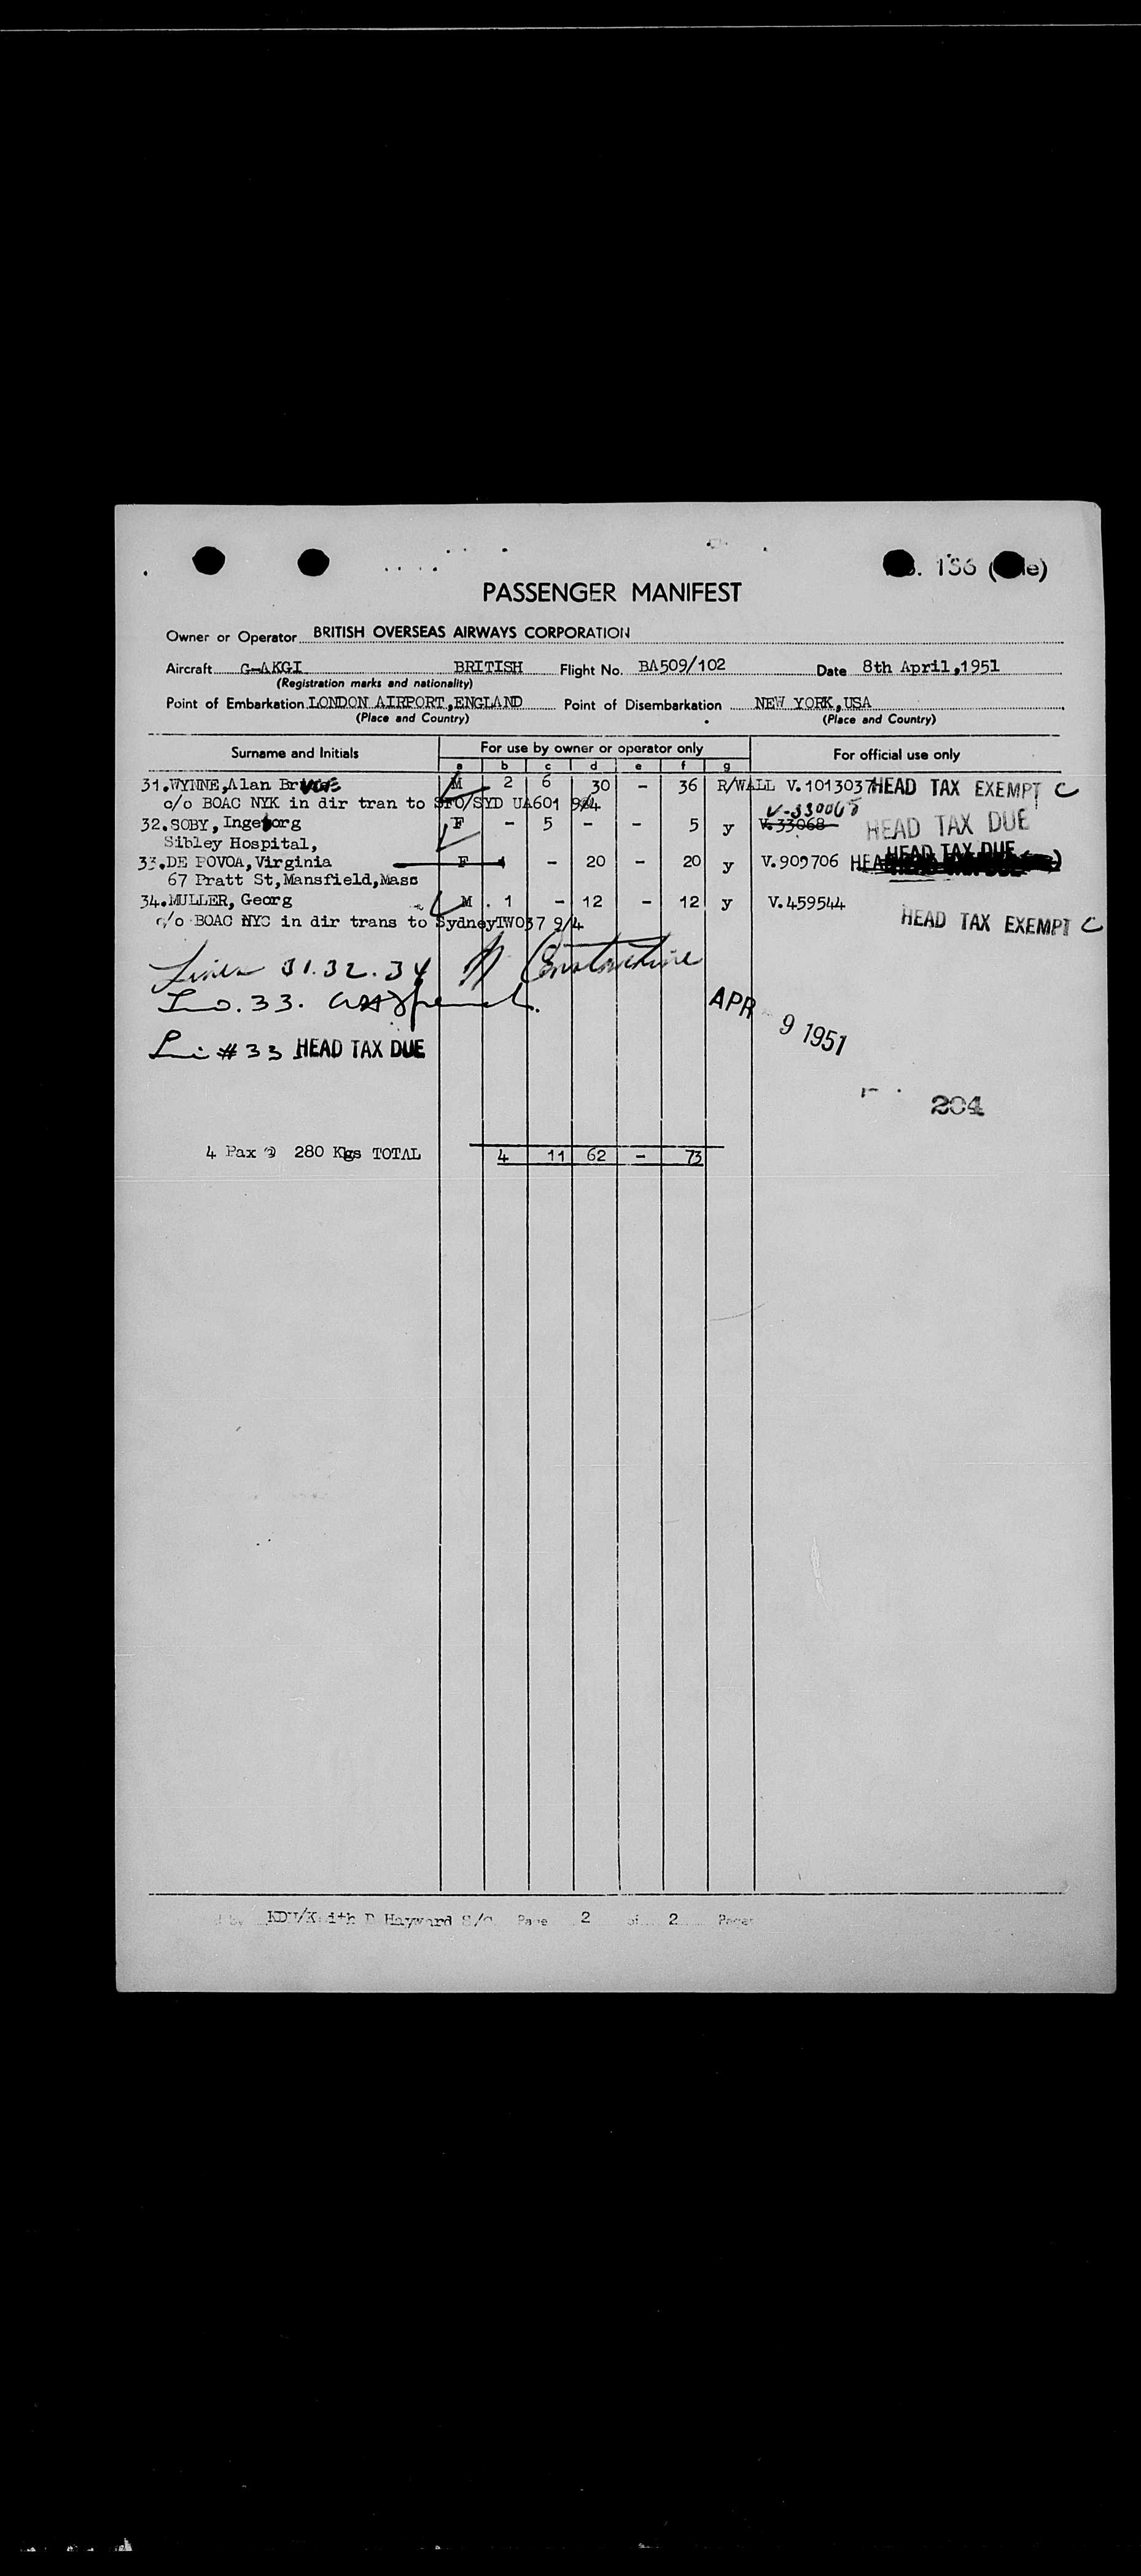 136
PASSENGER MANIFEST
Owner or Operator BRITISH OVERSEAS AIRWAYS CORPORATION
Aircraft G-AKGI BRITISH Flight No. BA509/102 Date 8th April,1951
(Registration marks and nationality)
Point of Embarkation LONDON AIRPORT,ENGLAND Point of Disembarkation NEW YORK,USA
(Place and Country) (Place and Country)
Surname and Initials For use by owner or operator only For official use only
a b c d e f g
31.WYNNE,Alan M 2 6 30 - 36 R/WALL V.1013037 HEAD TAX EXEMPT C
c/o BOAC NYK in dir tran to SFO/SYD UA601 9/4
V-330068
32.SOBY,Ingeborg F - 5 - - 5 y V.33068 HEAD TAX DUE
Sibley Hospital,
HEAD TAX DUE
33.DE POVOA,Virginia F - 20 - 20 y V.909706
67 Pratt St,Mansfield,Mass
34.MULLER, Georg M 1 - 12 - 12 y V.459544
HEAD TAX EXEMPT C
c/o BOAC NYC in dir trans to SydneyTW037 9/4
Lines 31.32.34 Constantine
33.
APR 9 1951
# 33 HEAD TAX DUE
204
4 Pax @ 280 Kgs TOTAL 4 11 62 - 73
Hayward Page 2 of 2 Pages